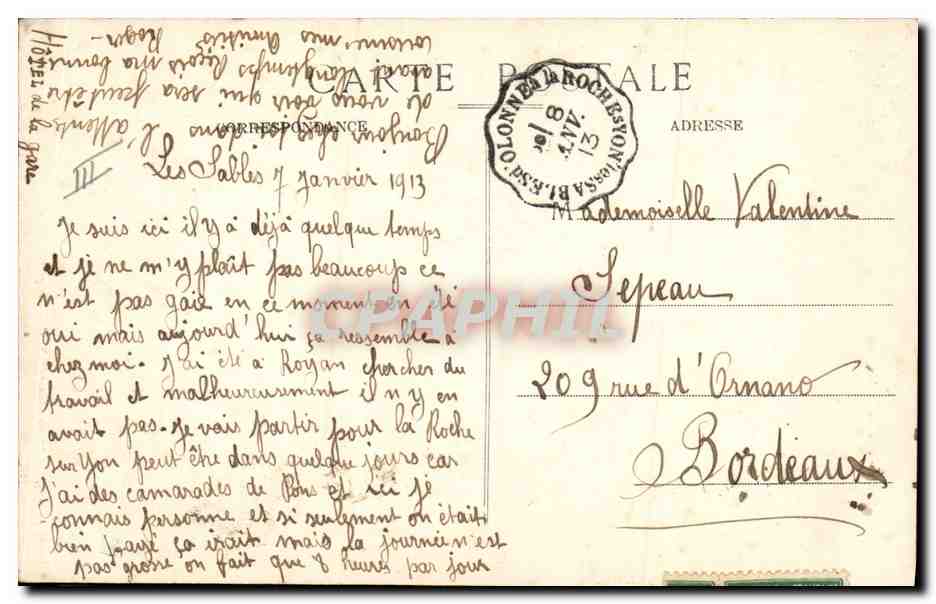 CARTE POSTALE
CORRESPONDANCE
ADRESSE
Hôtel de la gare
III
Les Sables 7 Janvier 1913
Je suis ici il y a déjà quelque temps
et je ne m'y plaît pas beaucoup ce
n'est pas gaie en ce moment en été
oui mais aujourd'hui ça ressemble à
chez moi. J'ai été à Royan chercher du
travail et malheureusement il n'y en
avait pas. Je vais partir pour la Roche
sur Yon peut être dans quelque jours car
j'ai des camarades de Pons et ici je
connais personne et si seulement on était
bien payé ça irait mais la journée n'est
pas grosse on fait que 8 heures par jour
Bonjour chez toi dans l'attente
de vous voir qui sera peut être
avant longtemps Reçois ma bonne
mes Amitiés
Roger
SABLES d'OLONNE à la ROCHE s YON
8
JANV.
13
Mademoiselle Valentine
Sepeau
209 rue d'Ornano
Bordeaux
CPAPHIL